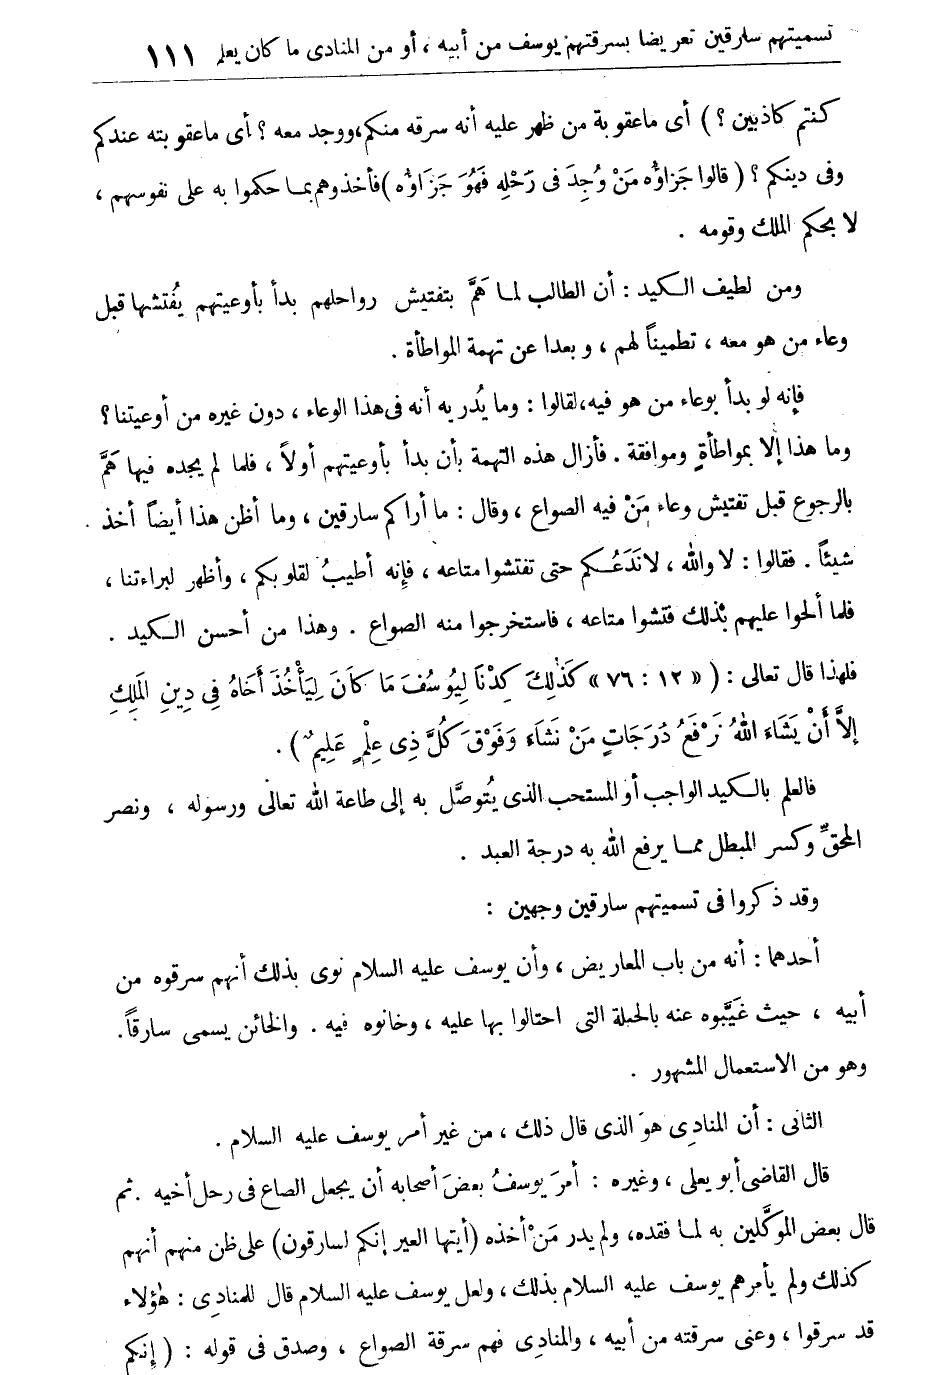 تسميتهم سارقين تعريضا بسرقتهم يوسف من أبيه ، أو من المنادى ما كان يعلم ١١١
كنتم كاذبين ؟ ) أى ماعقوبة من ظهر عليه أنه سرقه منكم،ووجد معه ؟ أى ماعقوبته عندكم
وفى دينكم ؟ ( قالوا جَزاؤُه مَنْ وُجِدَ فى رَحْلِهِ فَهُوَ جَزَاؤُه )فأخذوهم بما حكموا به على نفوسهم ،
لا بحكم الملك وقومه .
ومن لطيف الكيد : أن الطالب لما هَمَّ بتفتيش رواحلهم بدأ بأوعيتهم يُفتشها قبل
وعاء من هو معه ، تطميناً لهم ، وبعدا عن تهمة المواطأة .
فإنه لو بدأ بوعاء من هو فيه،لقالوا : وما يُدريه أنه فى هذا الوعاء ، دون غيره من أوعيتنا؟
وما هذا إلا بمواطأةٍ وموافقة . فأزال هذه التهمة بأن بدأ بأوعيتهم أولاً ، فلما لم يجده فيها هَمَّ
بالرجوع قبل تفتيش وعاء مَنْ فيه الصواع ، وقال : ما أراكم سارقين ، وما أظن هذا أيضاً أخذ
شيئاً . فقالوا : لا والله ، لانَدَعُكم حتى تفتشوا متاعه ، فإنه أطيبُ لقلوبكم ، وأظهر لبراءتنا ،
فلما ألحوا عليهم بذلك فتشوا متاعه ، فاستخرجوا منه الصواع . وهذا من أحسن الكيد .
فلهذا قال تعالى : ( « ١٢ : ٧٦ » كَذٰلِكَ كِدْنَا لِيُوسُفَ مَا كَانَ لِيَأْخُذَ أَخَاهُ فِى دِينِ المَلِكِ
إلاَّ أَنْ يَشَاءَ اللهُ نَرْفَعُ دَرَجَاتٍ مَنْ نَشَاءَ وَفَوْقَ كُلَّ ذِى عِلْمٍ عَلِيمٌ ) .
فالعلم بالكيد الواجب أو المستحب الذى يُتوصَّل به إلى طاعة الله تعالى ورسوله ، ونصر
المحقِّ وكسر المبطل مما يرفع الله به درجة العبد .
وقد ذكروا فى تسميتهم سارقين وجهين :
أحدهما : أنه من باب المعاريض ، وأن يوسف عليه السلام نوى بذلك أنهم سرقوه من
أبيه ، حيث غَيَّبوه عنه بالحيلة التى احتالوا بها عليه ، وخانوه فيه . والخائن يسمى سارقاً.
وهو من الاستعمال المشهور .
الثانى : أن المنادى هوَ الذى قال ذلك ، من غير أمر يوسف عليه السلام .
قال القاضى أبو يعلى ، وغيره : أمرَ يوسفُ بعضَ أصحابه أن يجعل الصاع فى رحل أخيه . ثم
قال بعض الموكَّلين به لما فقده، ولم يدر مَنْ أخذه (أيتها العير إنكم لسارقون) على ظن منهم أنهم
كذلك ولم يأمرهم يوسف عليه السلام بذلك ، ولعل يوسف عليه السلام قال للمنادى : هٰؤلاء
قد سرقوا ، وعنى سرقته من أبيه ، والمنادى فهم سرقة الصواع ، وصدق فى قوله : ( إنكم